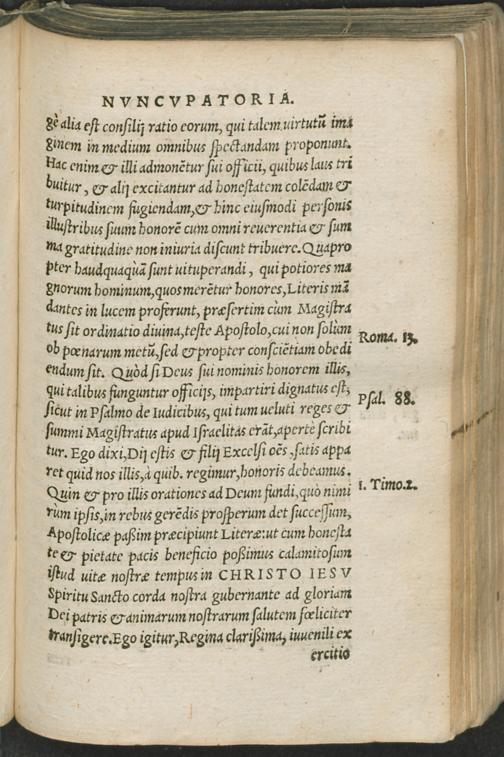 NVNCVPATORIA.
gè alia est consilij ratio eorum, qui talem uirtutũ ima
ginem in medium omnibus spectandam proponunt.
Hac enim & illi admonẽtur sui officii, quibus laus tri
buitur, & alij excitantur ad honestatem colẽdam &
turpitudinem fugiendam, & hinc eiusmodi personis
illustribus suum honorẽ cum omni reuerentia & sum
ma gratitudine non iniuria discunt tribuere. Quapro
pter haudquaquã sunt uituperandi, qui potiores ma
gnorum hominum, quos merẽtur honores, Literis mã
dantes in lucem proferunt, præsertim cùm Magistra
tus sit ordinatio diuina, teste Apostolo, cui non solùm
Roma. 13.
ob pœnarum metũ, sed & propter consciẽtiam obedi
endum sit. Quòd si Deus sui nominis honorem illis,
qui talibus funguntur officijs, impartiri dignatus est,
Psal. 88.
sicut in Psalmo de Iudicibus, qui tum ueluti reges &
summi Magistratus apud Israelitas erãt, apertè scribi
tur. Ego dixi, Dij estis & filij Excelsi oẽs, satis appa
ret quid nos illis, à quib. regimur, honoris debeamus.
1. Timo. 2.
Quin & pro illis orationes ad Deum fundi, quò nimi
rùm ipsis, in rebus gerẽdis prosperum det successum,
Apostolicæ paßim præcipiunt Literæ: ut cum honesta
te & pietate pacis beneficio poßimus calamitosum
istud uitæ nostræ tempus in CHRISTO IESV
Spiritu Sancto corda nostra gubernante ad gloriam
Dei patris & animarum nostrarum salutem fœliciter
transigere. Ego igitur, Regina clarißima, iuuenili ex
ercitio